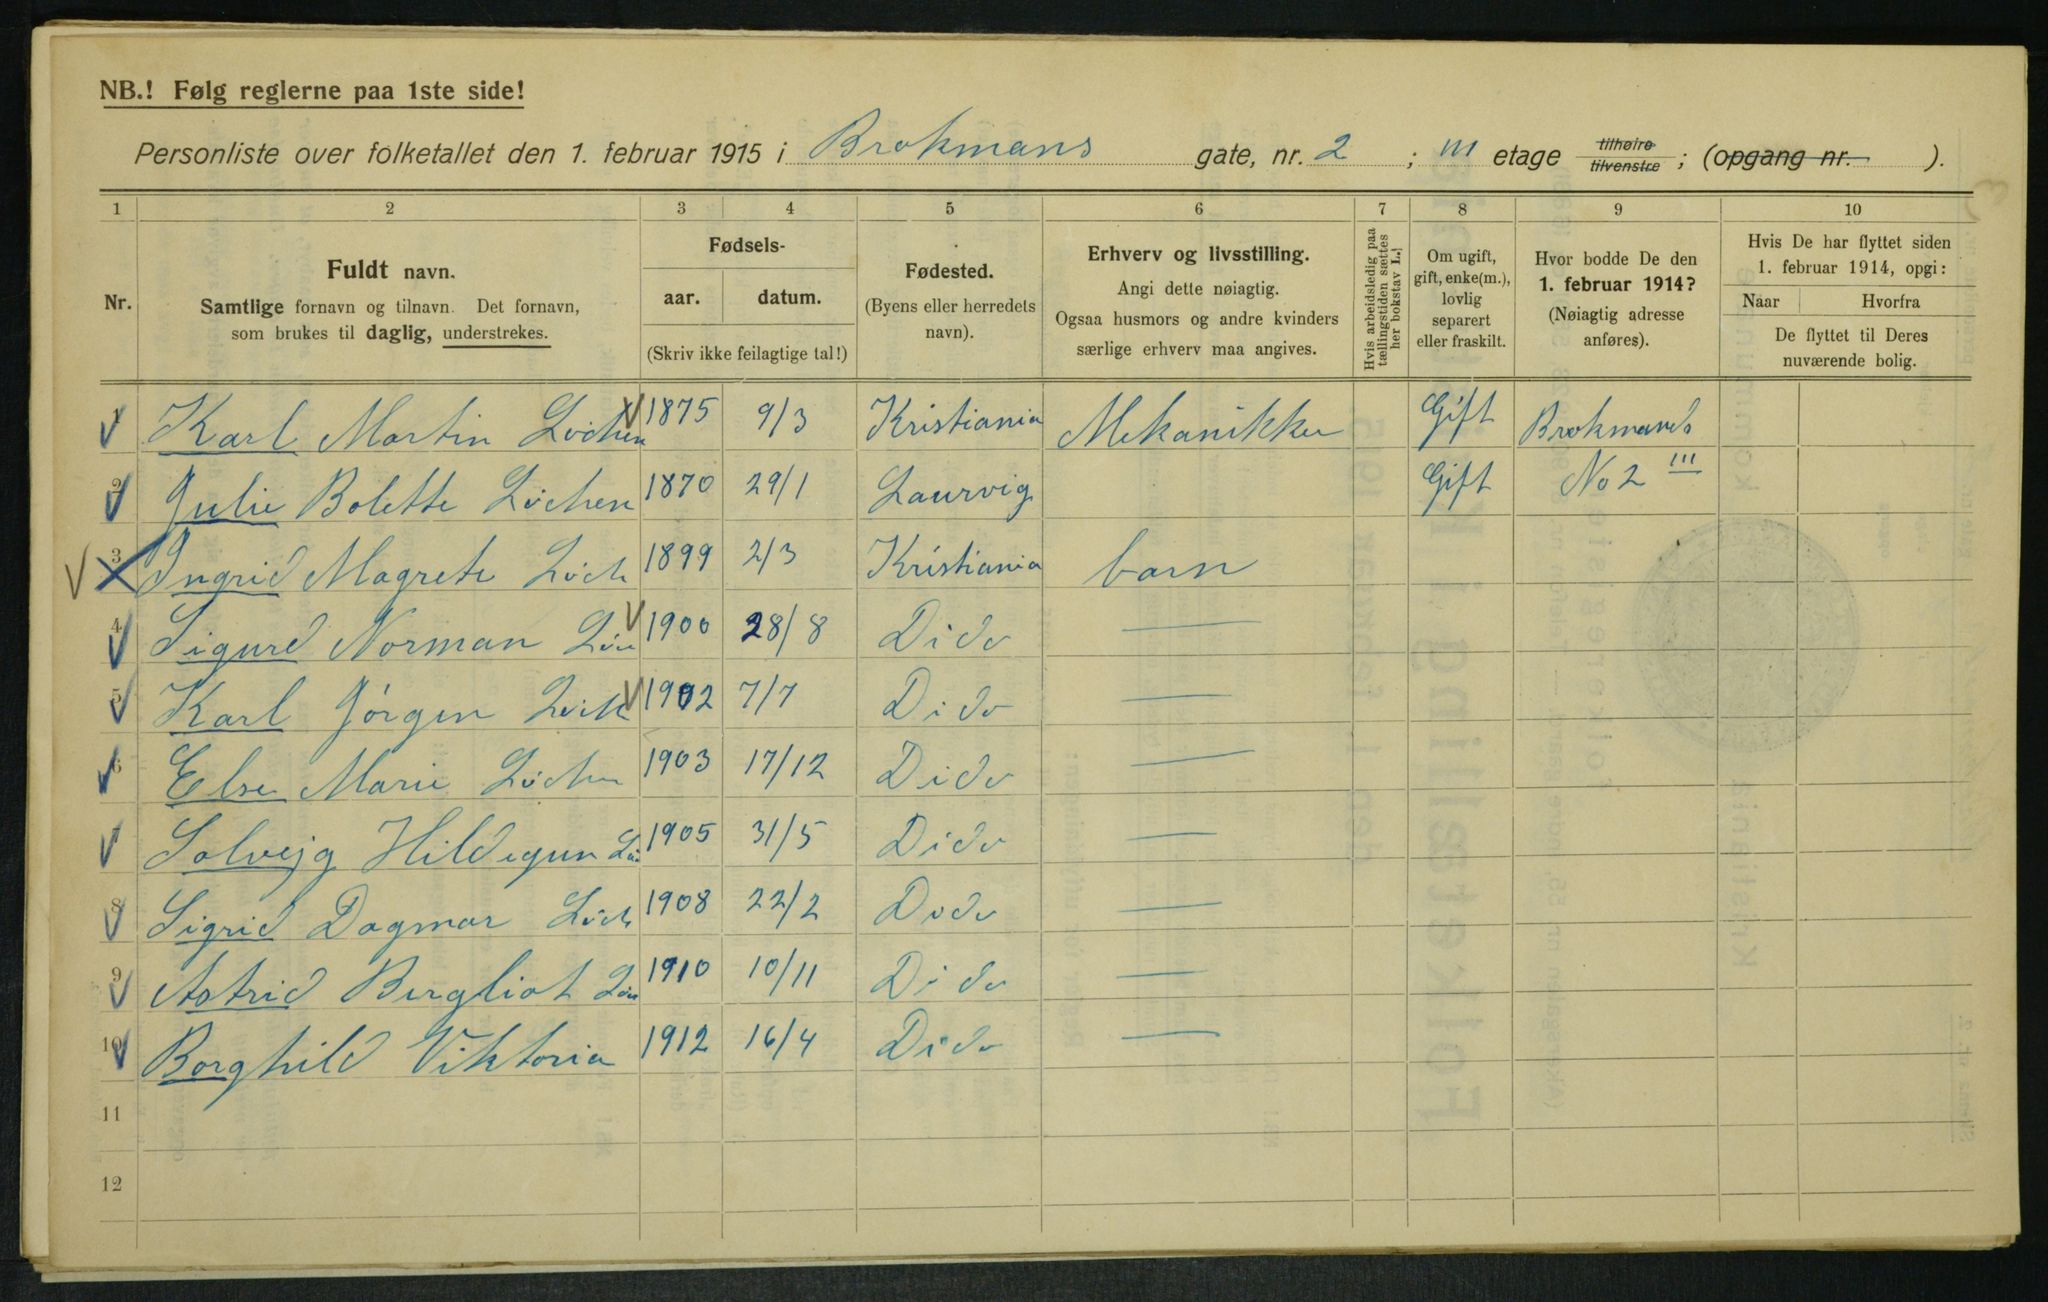 NB.! Følg reglerne paa 1ste side!
Personliste over folketallet den 1. februar 1915 i Brokmans gate, nr. 2 ; III etage tilhøire tilvenstre ; (opgang nr. ).
1 2 3 4 5 6 7 8 9 10
Nr.
Fuldt navn.
Samtlige fornavn og tilnavn. Det fornavn,
som brukes til daglig, understrekes.
Fødsels-
aar. datum.
(Skriv ikke feilagtige tal!)
Fødested.
(Byens eller herredets
navn).
Erhverv og livsstilling.
Angi dette nøiagtig.
Ogsaa husmors og andre kvinders
særlige erhverv maa angives.
Hvis arbeidsledig paa
tællingstiden sættes
her bokstav L.
Om ugift,
gift, enke(m.),
lovlig
separert
eller fraskilt.
Hvor bodde De den
1. februar 1914?
(Nøiagtig adresse
anføres).
Hvis De har flyttet siden
1. februar 1914, opgi:
Naar Hvorfra
De flyttet til Deres
nuværende bolig.
1 Karl Martin Løchen 1875 9/3 Kristiania Mekanikker Gift Brokmands
2 Julie Bolette Løchen 1870 29/1 Laurvig Gift No 2 III
3 Ingrid Magrete Løch 1899 2/3 Kristiania barn
4 Sigurd Norman 1900 28/8 Dido
5 Karl Jörgen 1902 7/7 Dido
6 Else Marie Løchen 1903 17/12 Dido
7 Solvejg Hildegun 1905 31/5 Dido
8 Sigrid Dagmar Løch 1908 22/2 Dido
9 Astrid Bergliot 1910 10/11 Dido
10 Borghild Viktoria 1912 16/4 Dido
11
12